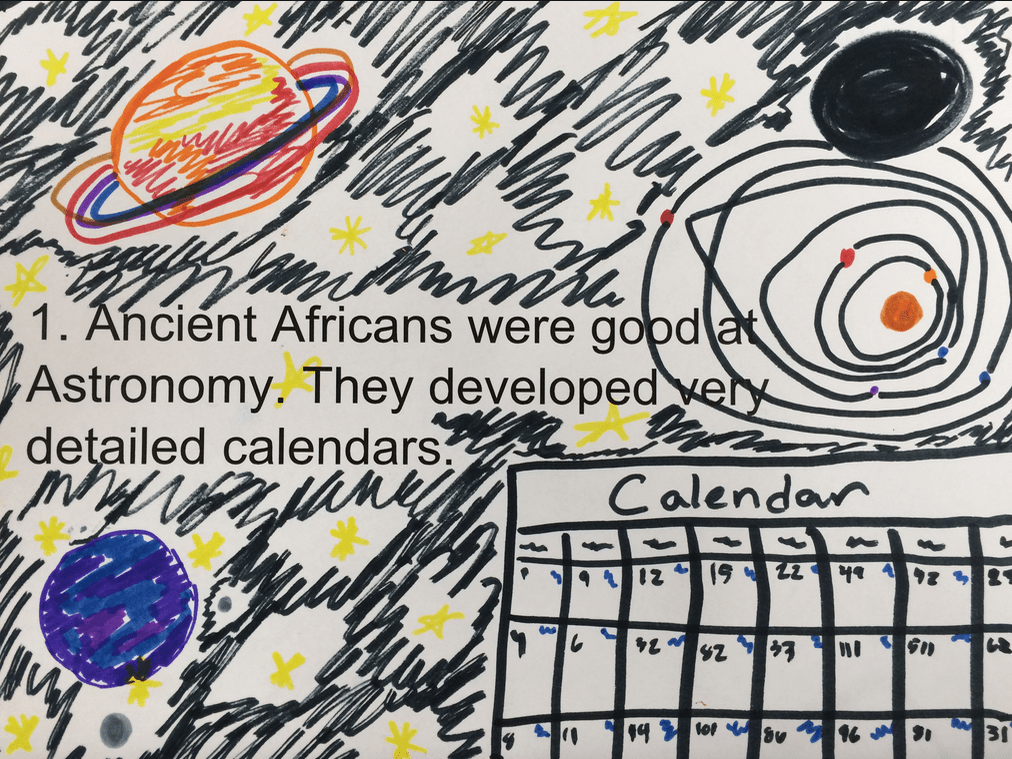 1. Ancient Africans were good at
Astronomy. They developed very
detailed calendars.
Calendar
9 12 15 22 49
4 6 32 82 37 111 511
8 11 14 101 86 96 81 31